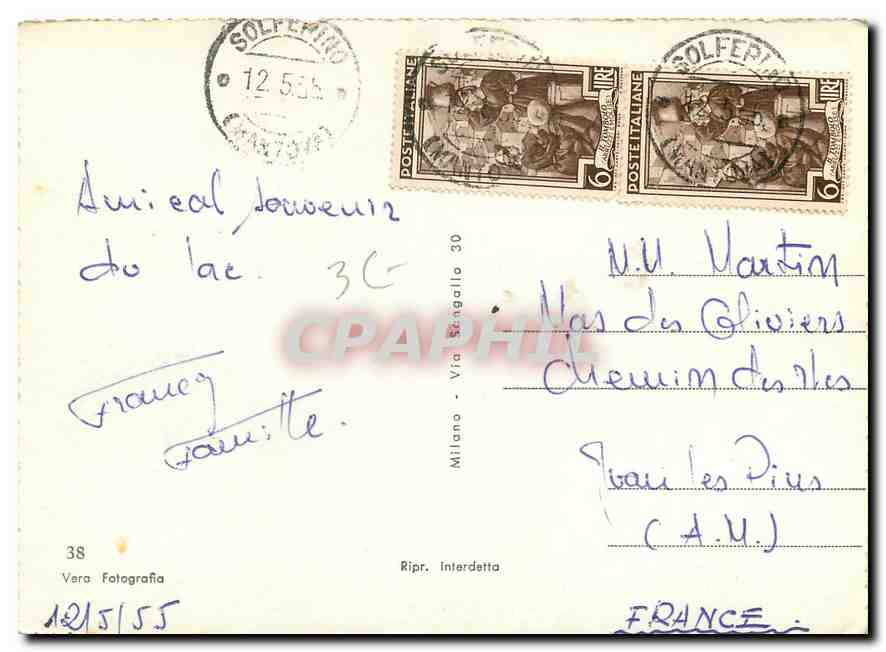 SOLFERINO
12.5.55
(MANTOVA)
POSTE ITALIANE
LIRE
6
POSTE ITALIANE
LIRE
6
SOLFERINO
Amical souvenir
du lac.
3€
Milano - Via Sangallo 30
M.M. Martin
Mas des Oliviers
Chemin des Iles
Juan les Pins
(A.M.)
FRANCE.
Famille.
CPAPHIL
38
Vera Fotografia
Ripr. Interdetta
12/5/55